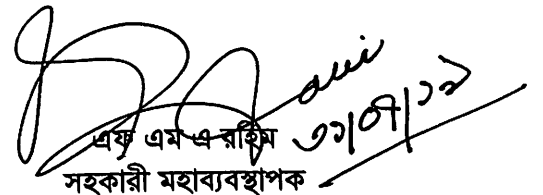 এফ এম এ রহিম
৩১/০৭/১২
সহকারী মহাব্যবস্থাপক